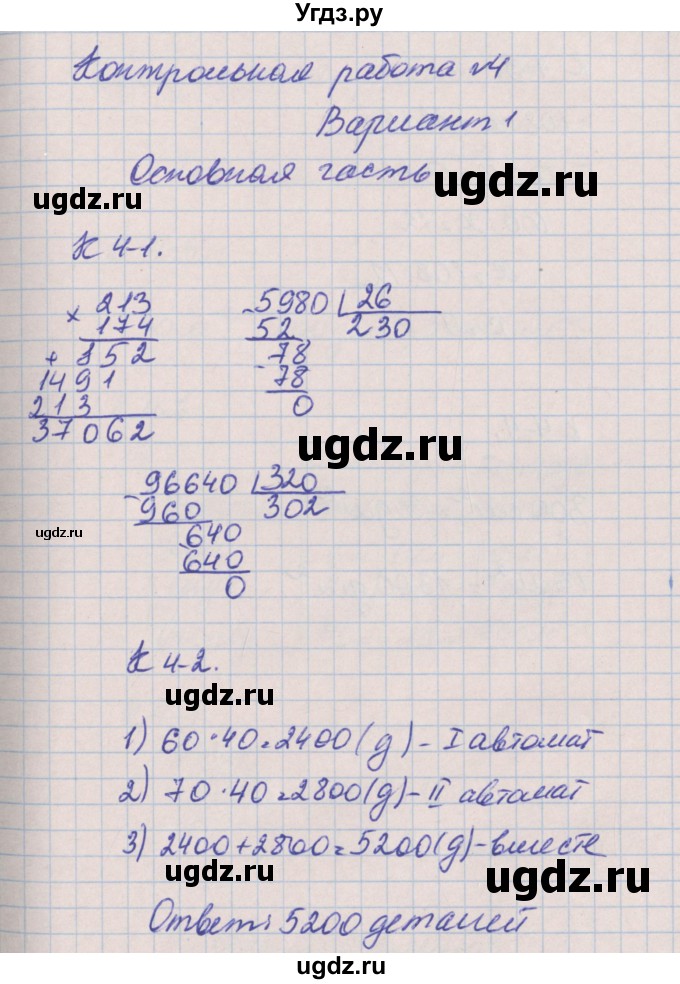 Угдз.ру
Контрольная работа №4
Вариант 1
Основная часть
ugdz.ru
ugdz.ru
К 4-1.
× 213
174
+ 852
1491
213
37062
- 5980 | 26
52 230
78
- 78
0
ugdz.ru
- 96640 | 320
960 302
ugdz.ru
640
640
0
К 4-2.
ugdz.ru
1) 60·40=2400(д)-I автомат
2) 70·40=2800(д)-II автомат
3) 2400+2800=5200(д)-вместе
ugdz.ru
ugdz.ru
Ответ: 5200 деталей
ugdz.ru